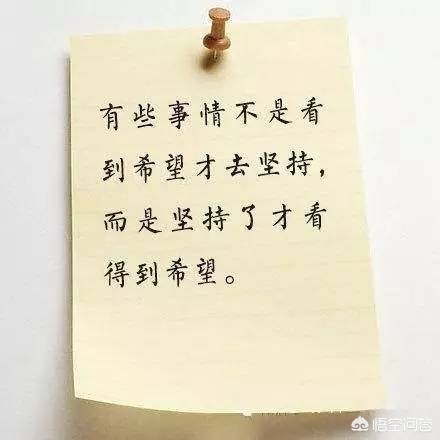 有些事情不是看
到希望才去坚持，
而是坚持了才看
得到希望。
悟空问答